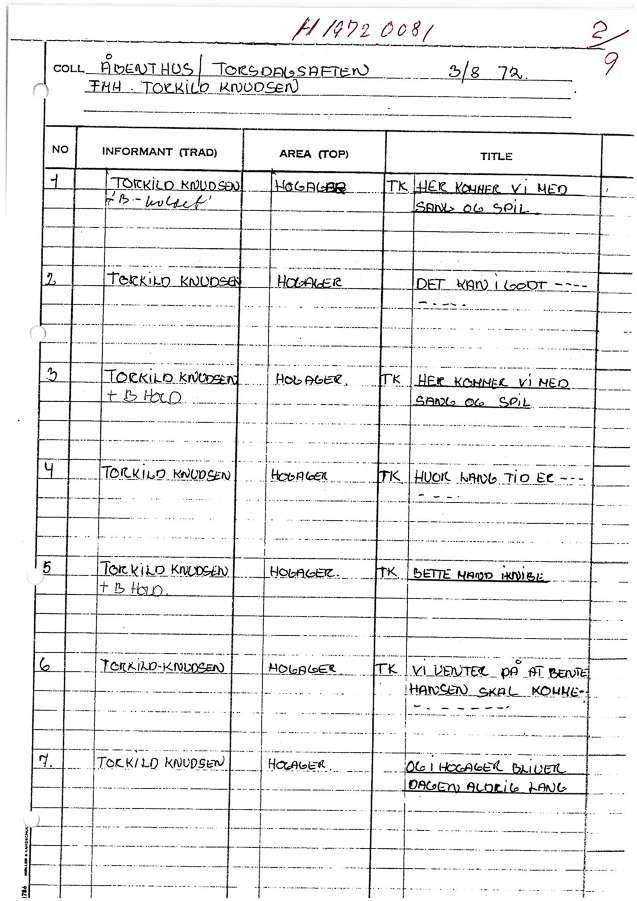 H 1972 0081
2/9
COLL ÅBENTHUS / TORSDAGSAFTEN 3/8 72.
FMH. TORKILD KNUDSEN
NO INFORMANT (TRAD) AREA (TOP) TITLE
1 TORKILD KNUDSEN HOGAGER TK HER KOMMER VI MED
+ B - holdet SANG OG SPIL
2 TORKILD KNUDSEN HOGAGER DET KAN I GODT ----
-.-.--.
3 TORKILD KNUDSEN HOGAGER. TK HER KOMMER VI MED
+ B HOLD SANG OG SPIL
4 TORKILD KNUDSEN HOGAGER TK HVOR LANG TID ER ---
- - - - .
5 TORKILD KNUDSEN HOGAGER. TK BETTE MAND I KNIBE
+ B HOLD.
6 TORKILD-KNUDSEN HOGAGER TK VI VENTER PÅ AT BENTE
HANSEN SKAL KOMME-
-. - - - - - -.
7. TORKILD KNUDSEN HOGAGER. OG I HOGAGER BLIVER
DAGEN ALDRIG LANG